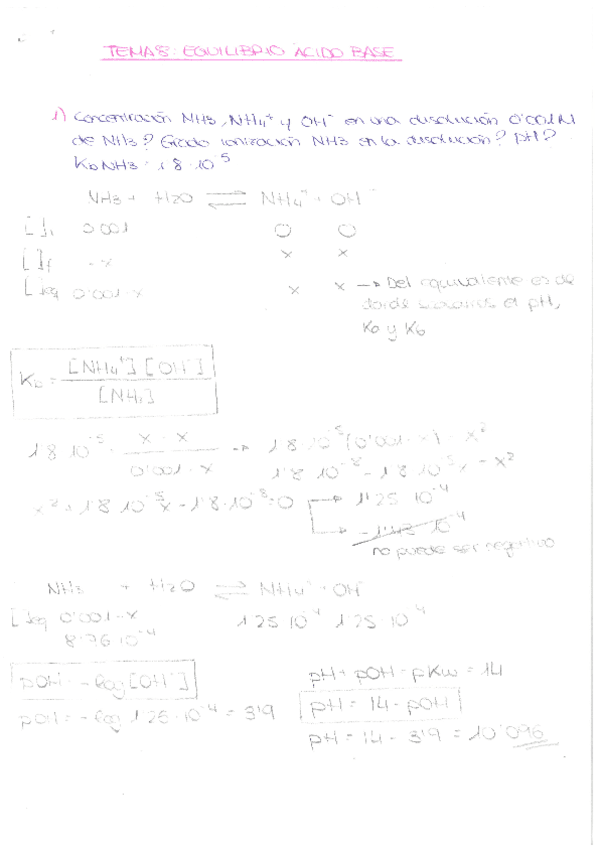 TEMA 8: EQUILIBRIO ÁCIDO BASE
1) Concentración NH3, NH4⁺ y OH⁻ en una disolución 0'001M
de NH3? Grado ionización NH3 en la disolución? pH?
Kb NH3 = 1'8·10⁻⁵
NH3 + H2O ⇌ NH4⁺ + OH⁻
[ ]i 0'001 0 0
[ ]f -x x x
[ ]eq 0'001-x x x → Del equivalente es de
donde sacamos el pH,
y Kb
Kb = [NH4⁺][OH⁻] / [NH3]
1'8·10⁻⁵ = x·x / 0'001-x → 1'8·10⁻⁵(0'001-x) = x²
1'8·10⁻⁸ - 1'8·10⁻⁵x = x²
x² + 1'8·10⁻⁵x - 1'8·10⁻⁸ = 0 → 1'25·10⁻⁴
→ -1'43·10⁻⁴
no puede ser negativo
NH3 + H2O ⇌ NH4⁺ + OH⁻
[ ]eq 0'001-x 1'25·10⁻⁴ 1'25·10⁻⁴
8'76·10⁻⁴
pOH = -log[OH⁻] pH + pOH = pKw = 14
pOH = -log 1'25·10⁻⁴ = 3'9 pH = 14 - pOH
pH = 14 - 3'9 = 10'096